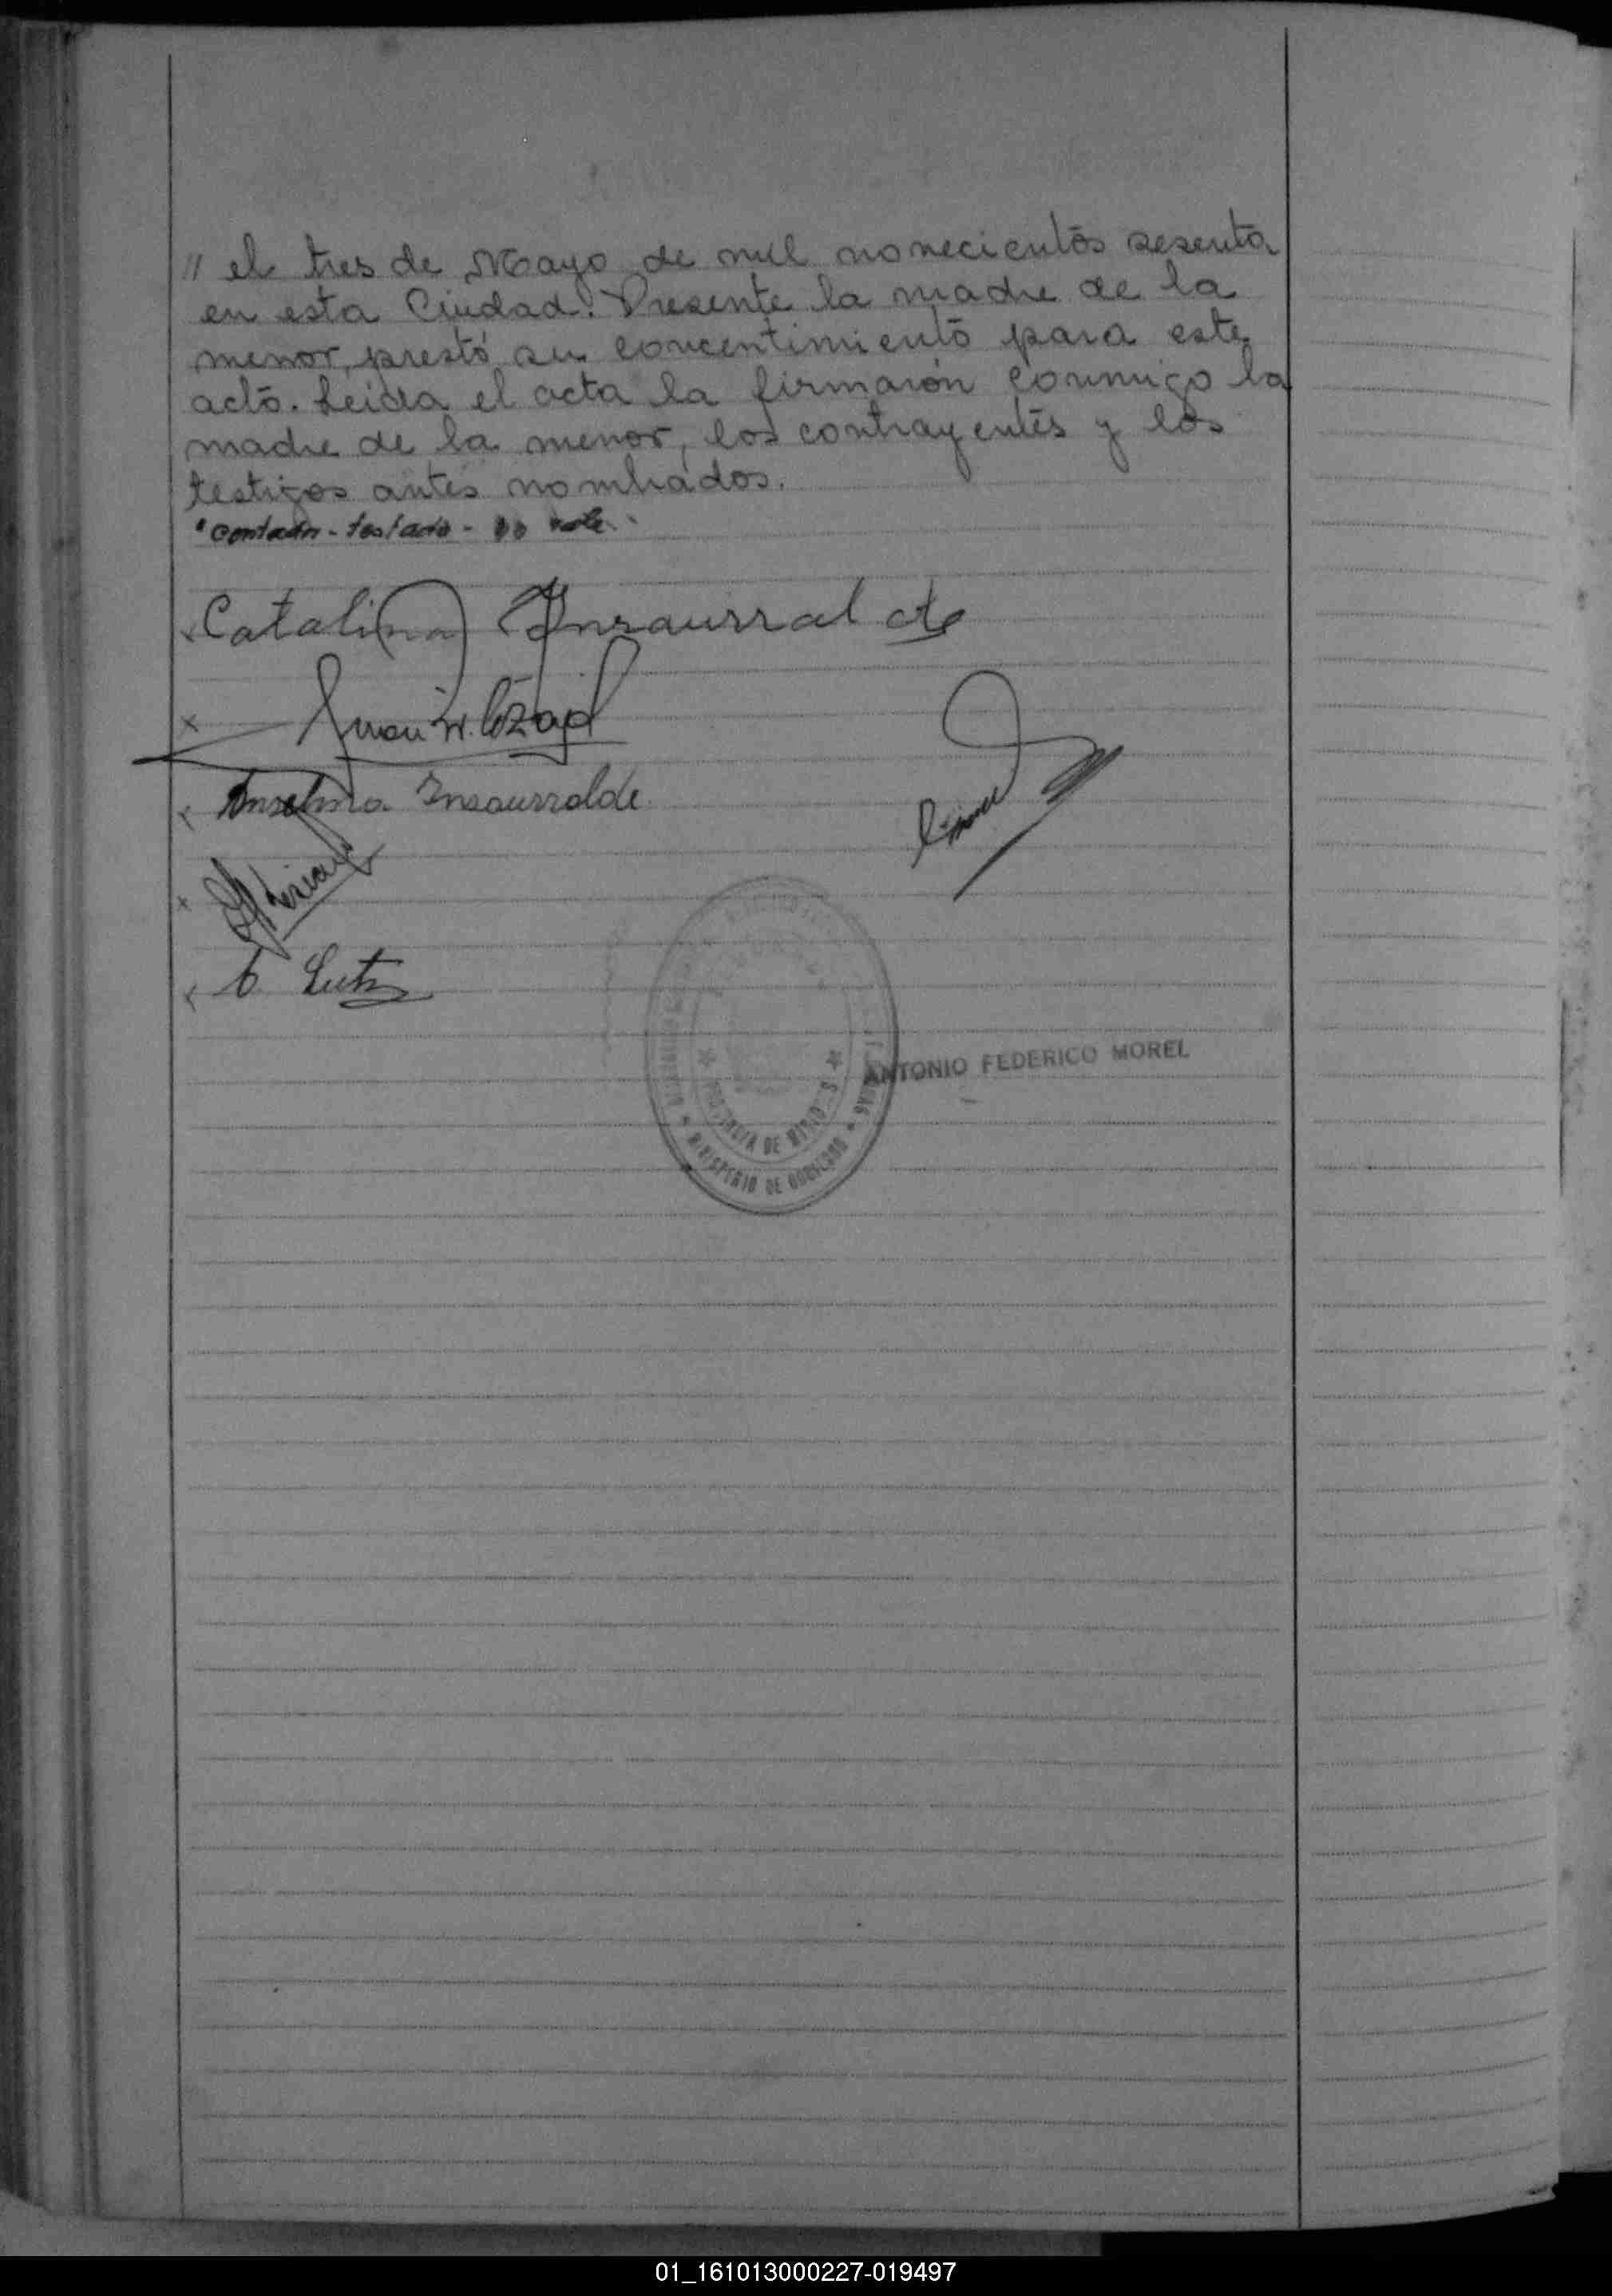 // el tres de Mayo de mil novecientos sesenta
en esta Ciudad. Presente la madre de la
menor, prestó su concentimiento para este
acto. Leida el acta la firmarón conmigo la
madre de la menor, los contrayentes y los
testigos antes nombrados.
testado - no vale.
Catalina Insaurralde
Juan
Anselma Insaurralde
Lutz
ANTONIO FEDERICO MOREL
PROVINCIA DE MISIONES
MINISTERIO DE GOBIERNO
01_161013000227-019497